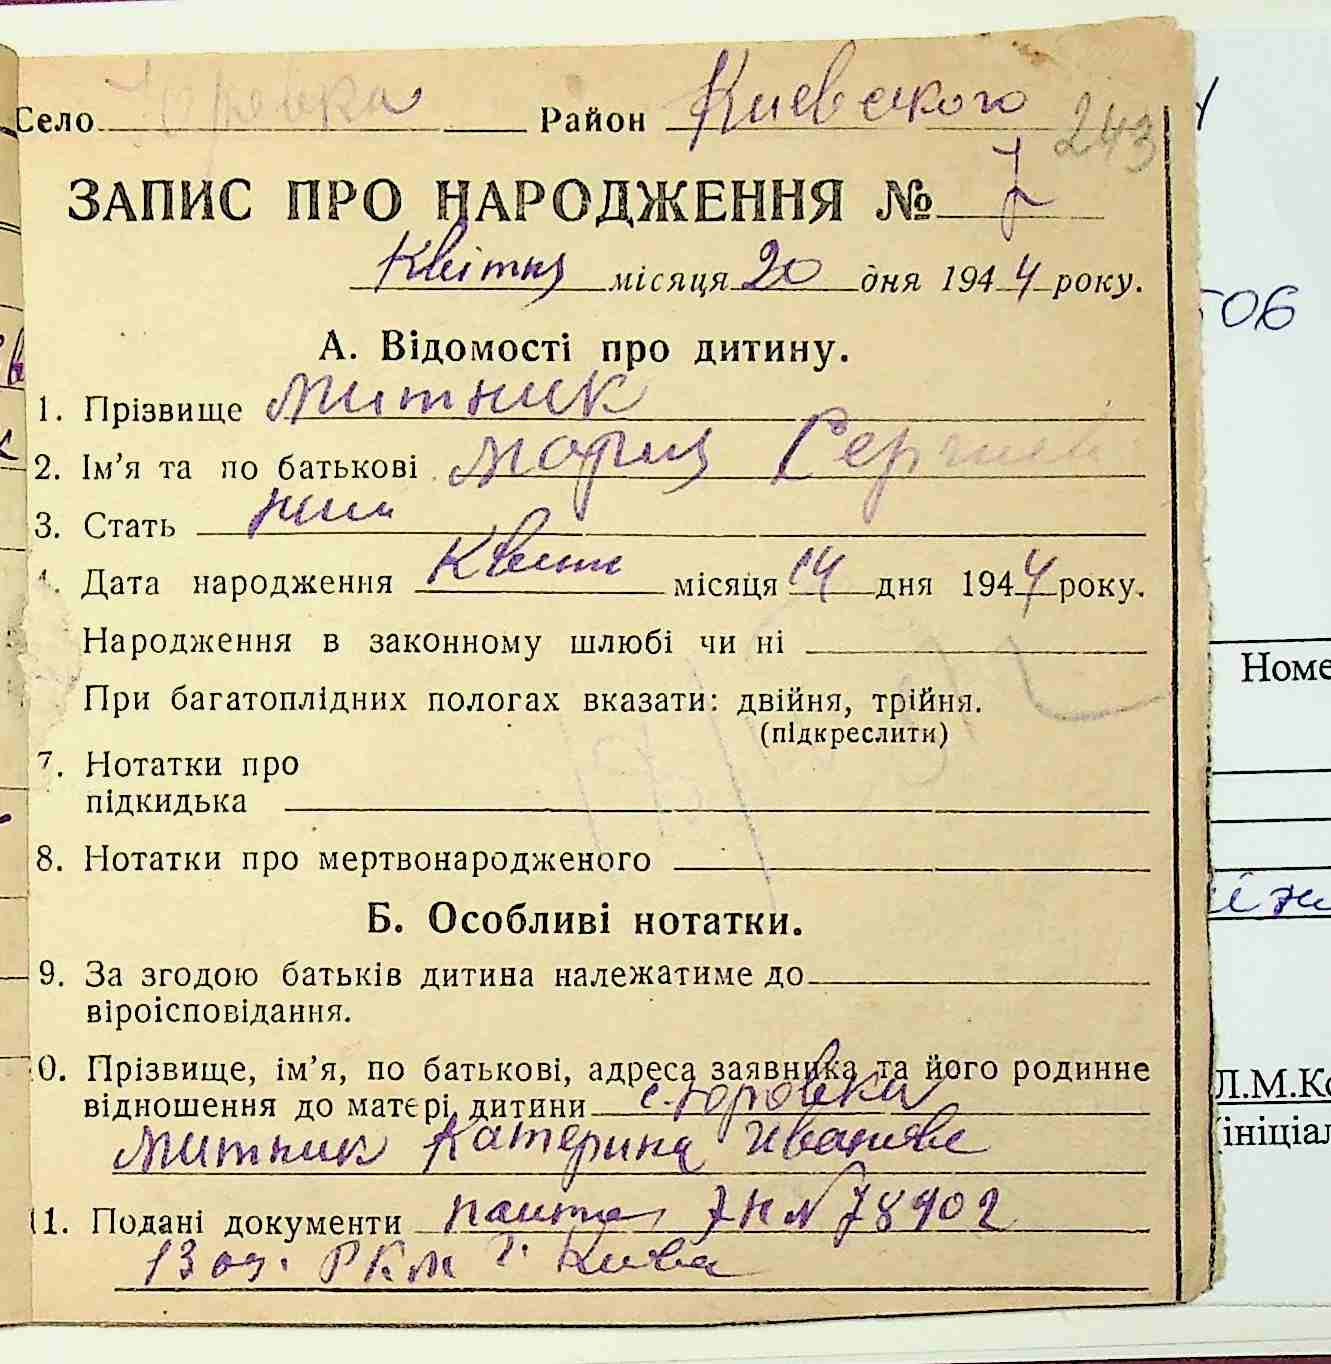 Село Юровка Район Киевского
243
ЗАПИС ПРО НАРОДЖЕННЯ № 7
Квітня місяця 20 дня 1944 року.
506
А. Відомості про дитину.
1. Прізвище Митник
2. Ім’я та по батькові Мария Сергиев
3. Стать
4. Дата народження місяця 14 дня 1944 року.
Народження в законному шлюбі чи ні
Номе
При багатоплідних пологах вказати: двійня, трійня.
(підкреслити)
7. Нотатки про
підкидька
8. Нотатки про мертвонародженого
Б. Особливі нотатки.
9. За згодою батьків дитина належатиме до
віроісповідання.
0. Прізвище, ім’я, по батькові, адреса заявника та його родинне
відношення до матері дитини с. Юровка
Л.М.Ко
Митник Катерина Иванове
(ініціал
11. Подані документи 7 н № 78902
13 РКМ г. Киева